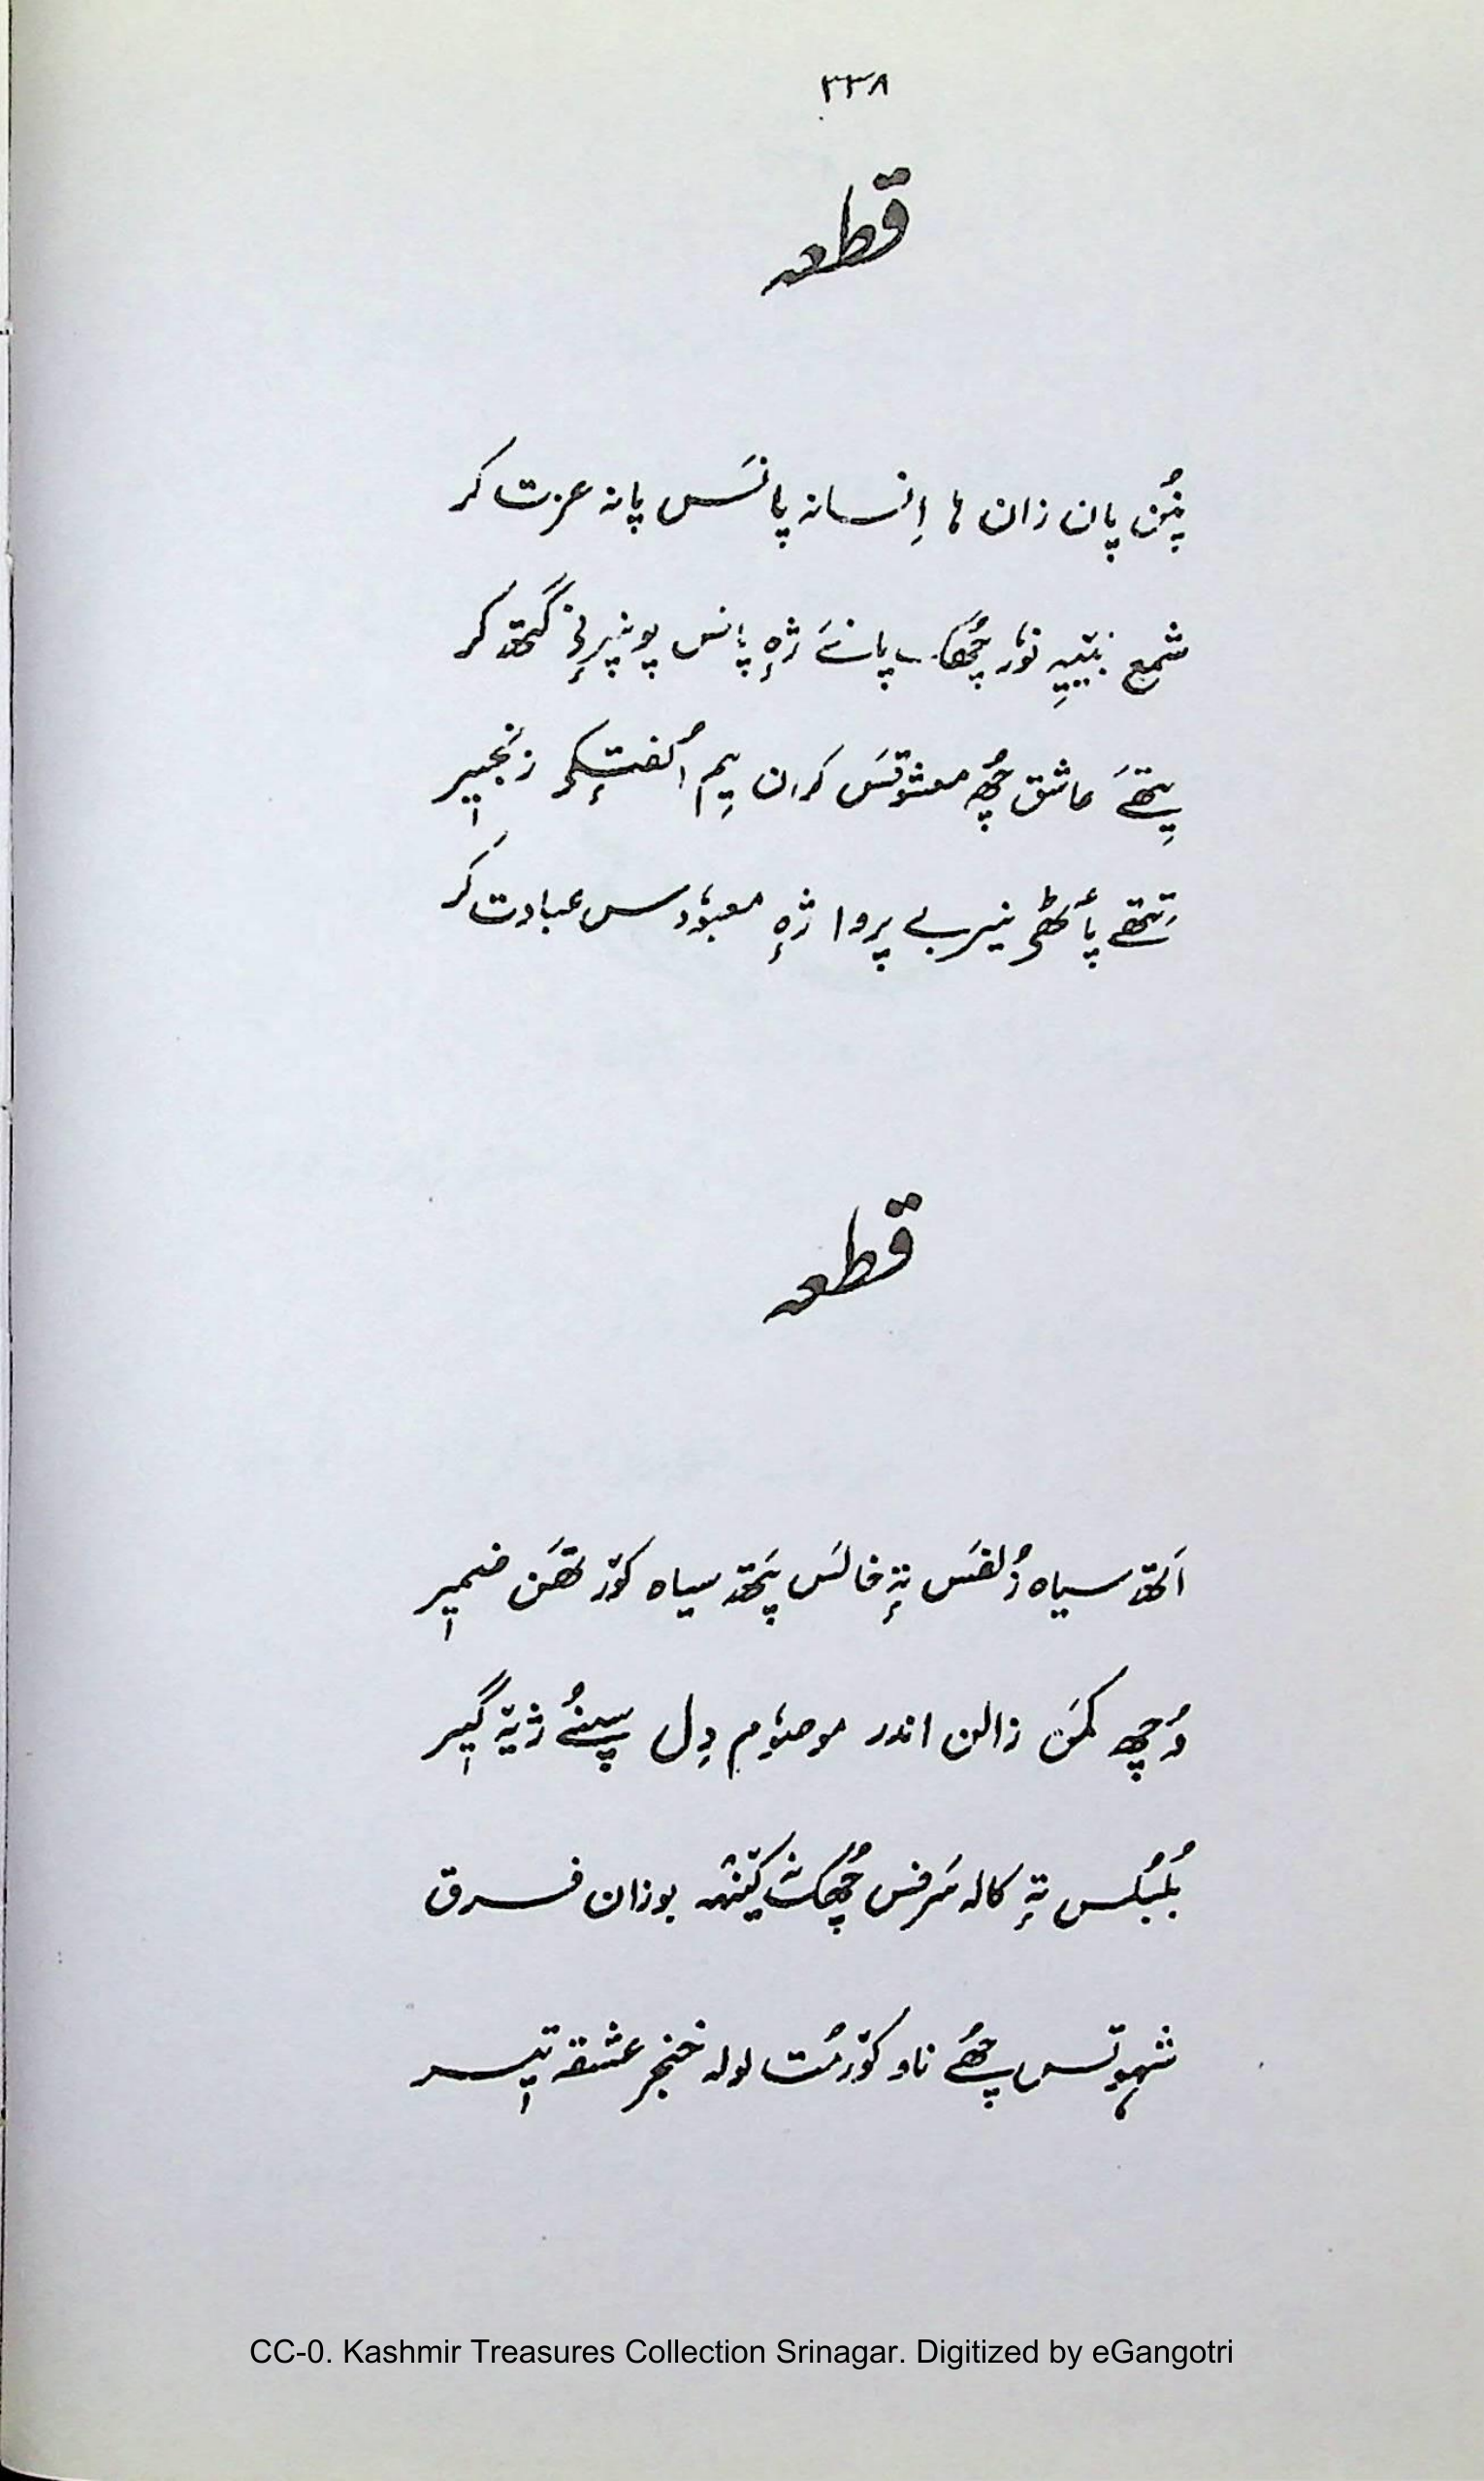 ٣٣٨
قطعہ
پنُن پان زان ہا اِنسانہ پانَس پانہ عزت کر
شمع بنیتِیہِ نوٗر چُھکھ پانَے ژٕہ پانس پونپرٕنۍ گتھ کر
یِتھَے عاشق چُھ معشوقَس کران یِم اُلفتٕکۍ زنجیٖر
تِتھے پأٹھۍ نیر بے پروا ژٕہ معبوٗدس عبادت کر
قطعہ
اَتھ سیاہ زُلفَس تہٕ خالَس پَتھ سیاہ کوٚرتھَن ضمیٖر
وُچھ کمَن زالن اندر موصوٗم دِل سپُنے ژیٚہ گیٖر
بُلبُلس تہٕ کالہ سَرفس چُھکنہٕ کیٚنہہ بوزان فرق
شہوتس چُھے ناو کوٚرمُت لولہ خنجر عشقہ تیٖر
CC-0. Kashmir Treasures Collection Srinagar. Digitized by eGangotri